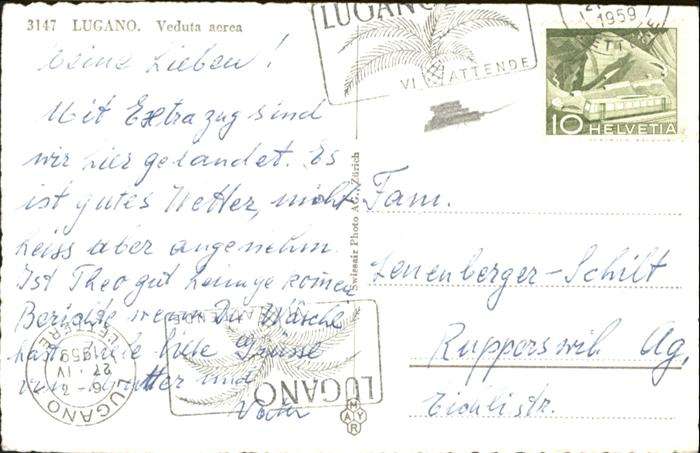 3147 LUGANO. Veduta aerea
Meine Lieben!
Mit Extrazug sind
wir hier gelandet. Es
ist gutes Wetter, nicht
heiss aber angenehm.
Ist Theo gut heimgekomen
Berichte wenn Du Wäsche
hast viele liebe Grüsse
von Mutter und
Vater
Swissair Photo AG., Zürich
LUGANO
VI ATTENDE
1959
LETTERE
10 HELVETIA
Fam.
Leuenberger-Schilt
Rupperswil Ag,
LUGANO
VI ATTENDE
LUGANO
27. IV
1959
LETTERE
MAYR